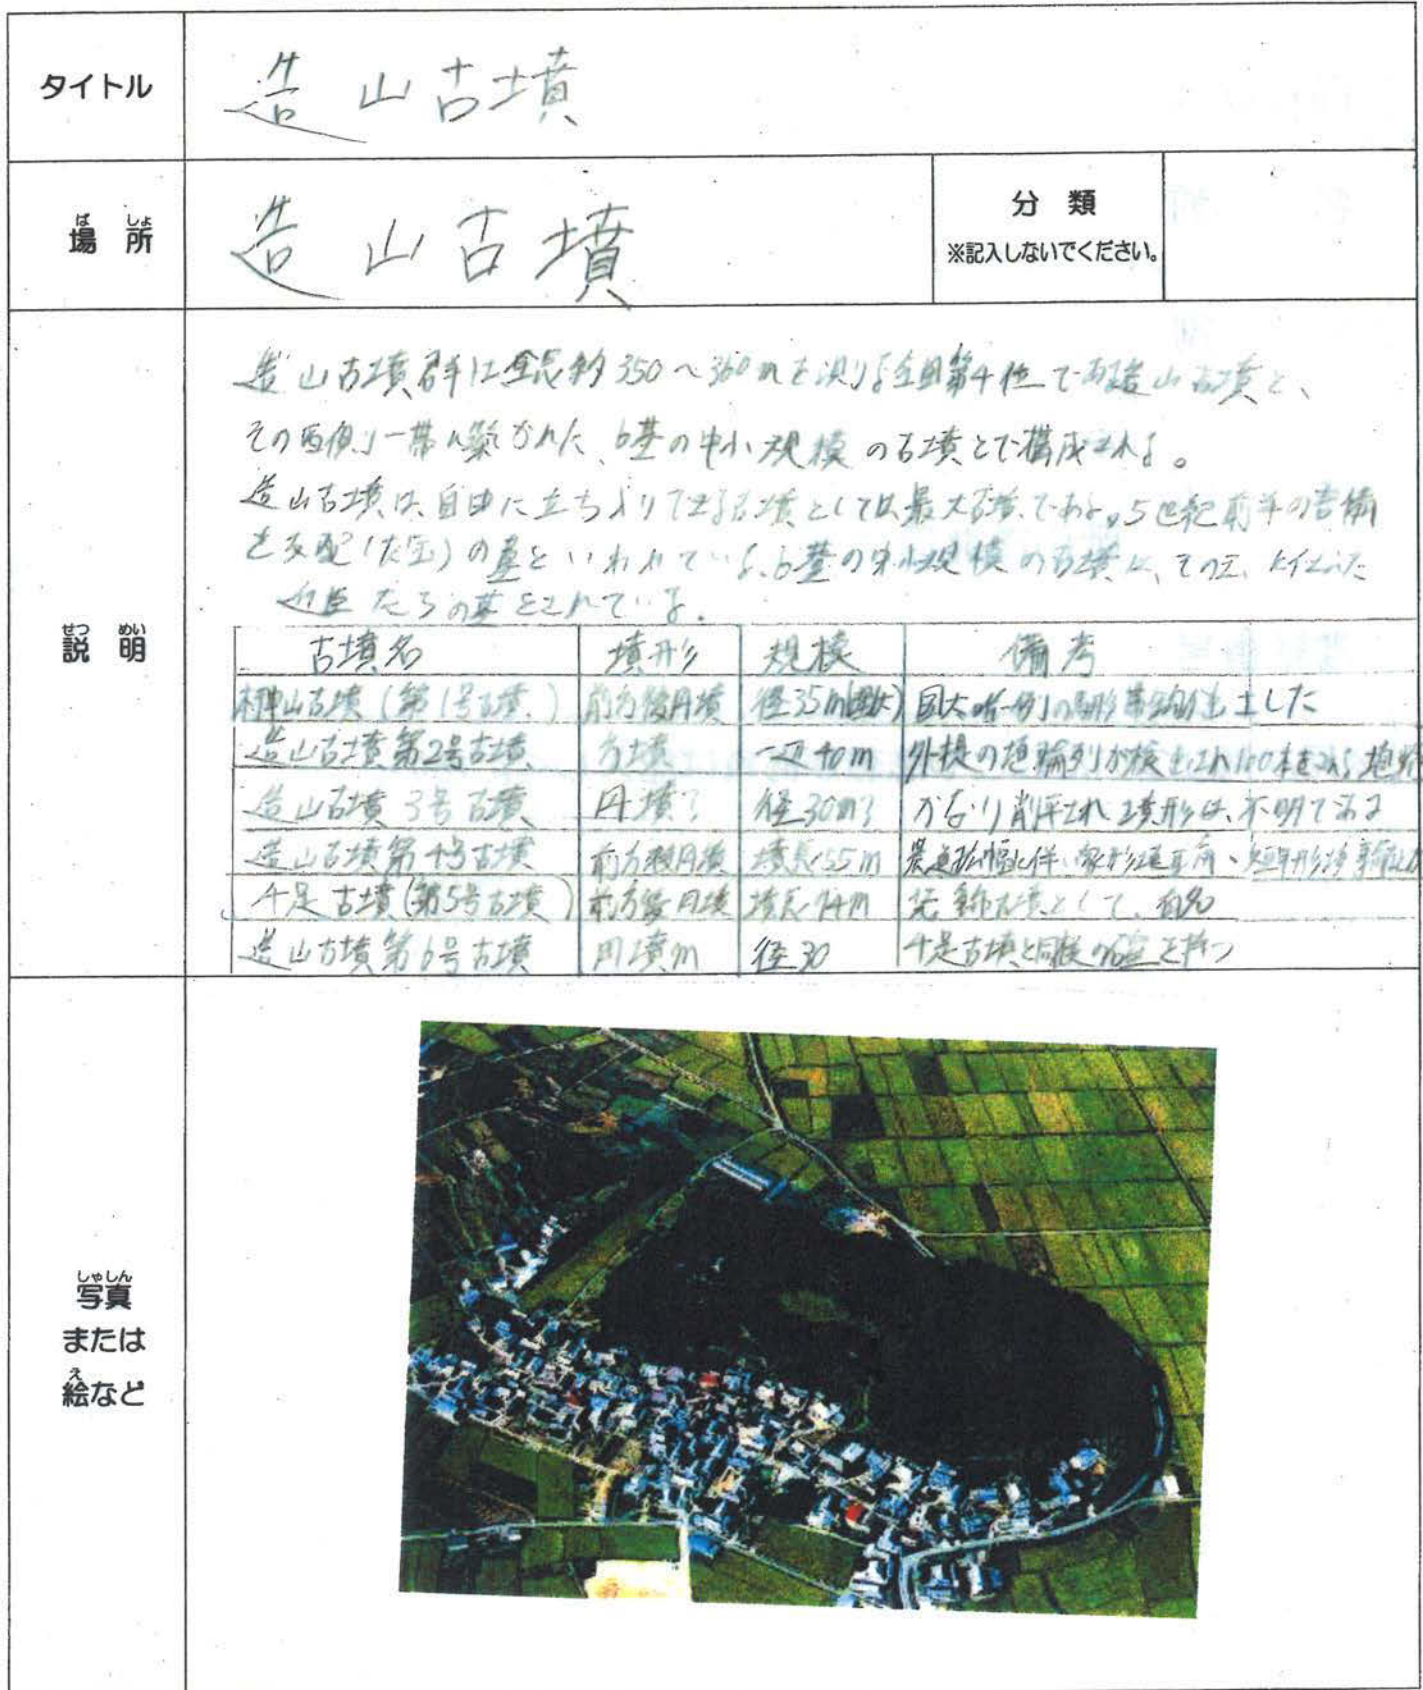 タイトル
造山古墳
場所
ばしょ
造山古墳
分類
※記入しないでください。
説明
せつめい
造山古墳群は全長約350~360mを測る全国第4位である造山古墳と、
その西側一帯に築かれた、6基の中小規模の古墳とで構成される。
造山古墳は、自由に立ちよりできる古墳としては最大古墳である。5世紀前半の吉備
を支配の墓といわれている。6基の中小規模の古墳は、その
たちの墓とされている。
古墳名 墳形 規模 備考
榊山古墳(第1号古墳) 前方後円墳 径35m 国内唯一例の馬形帯鈎が出土した
造山古墳第2号古墳 方墳 一辺40m 外堤の埴輪列が検出され100本をこえる
造山古墳3号古墳 円墳? 径30m? かなり削平され墳形は、不明である
造山古墳第4号古墳 前方後円墳 墳長55m 農道拡幅に伴い家形埴輪
千足古墳(第5号古墳) 前方後円墳 墳長74m 装飾古墳として、有名
造山古墳第6号古墳 円墳m 径30 千足古墳と同様の石室を持つ
写真
しゃしん
または
絵など
え